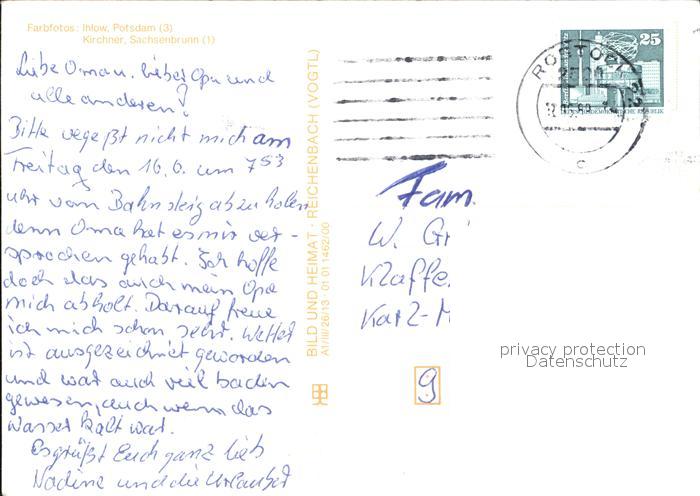 Farbfotos: Ihlow, Potsdam (3)
Kirchner, Sachsenbrunn (1)
Liebe Oma u. lieber Opa und
alle anderen!
Bitte vegeßt nicht mich am
Freitag den 16.6. um 7 53
uhr vom Bahnsteig abzuholen
denn Oma hat es mir ver-
sprochen gehabt. Ich hoffe
doch das auch mein Opa
mich abholt. Darauf freue
ich mich schon sehr. Wetter
ist ausgezeichnet geworden
und war auch viel baden
gewesen, auch wenn das
Wasser kalt war.
Es grüßt Euch ganz lieb
Nadine und die Urlauber
BILD UND HEIMAT · REICHENBACH (VOGTL)
A1/III/26/13 · 01 01 1462/00
ROSTOCK
25
c
Fam.
W. Gr
Klaffe
Karl-M
9
privacy protection
Datenschutz